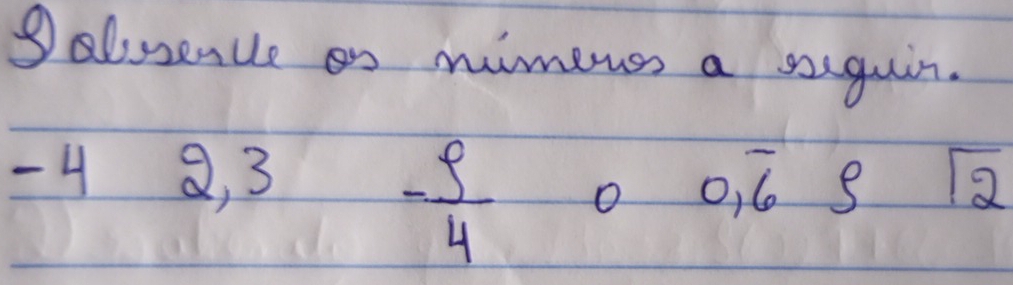 9 observe os números a seguir.
-4 2,3 -9/4 0 0,6̅ 9 √2